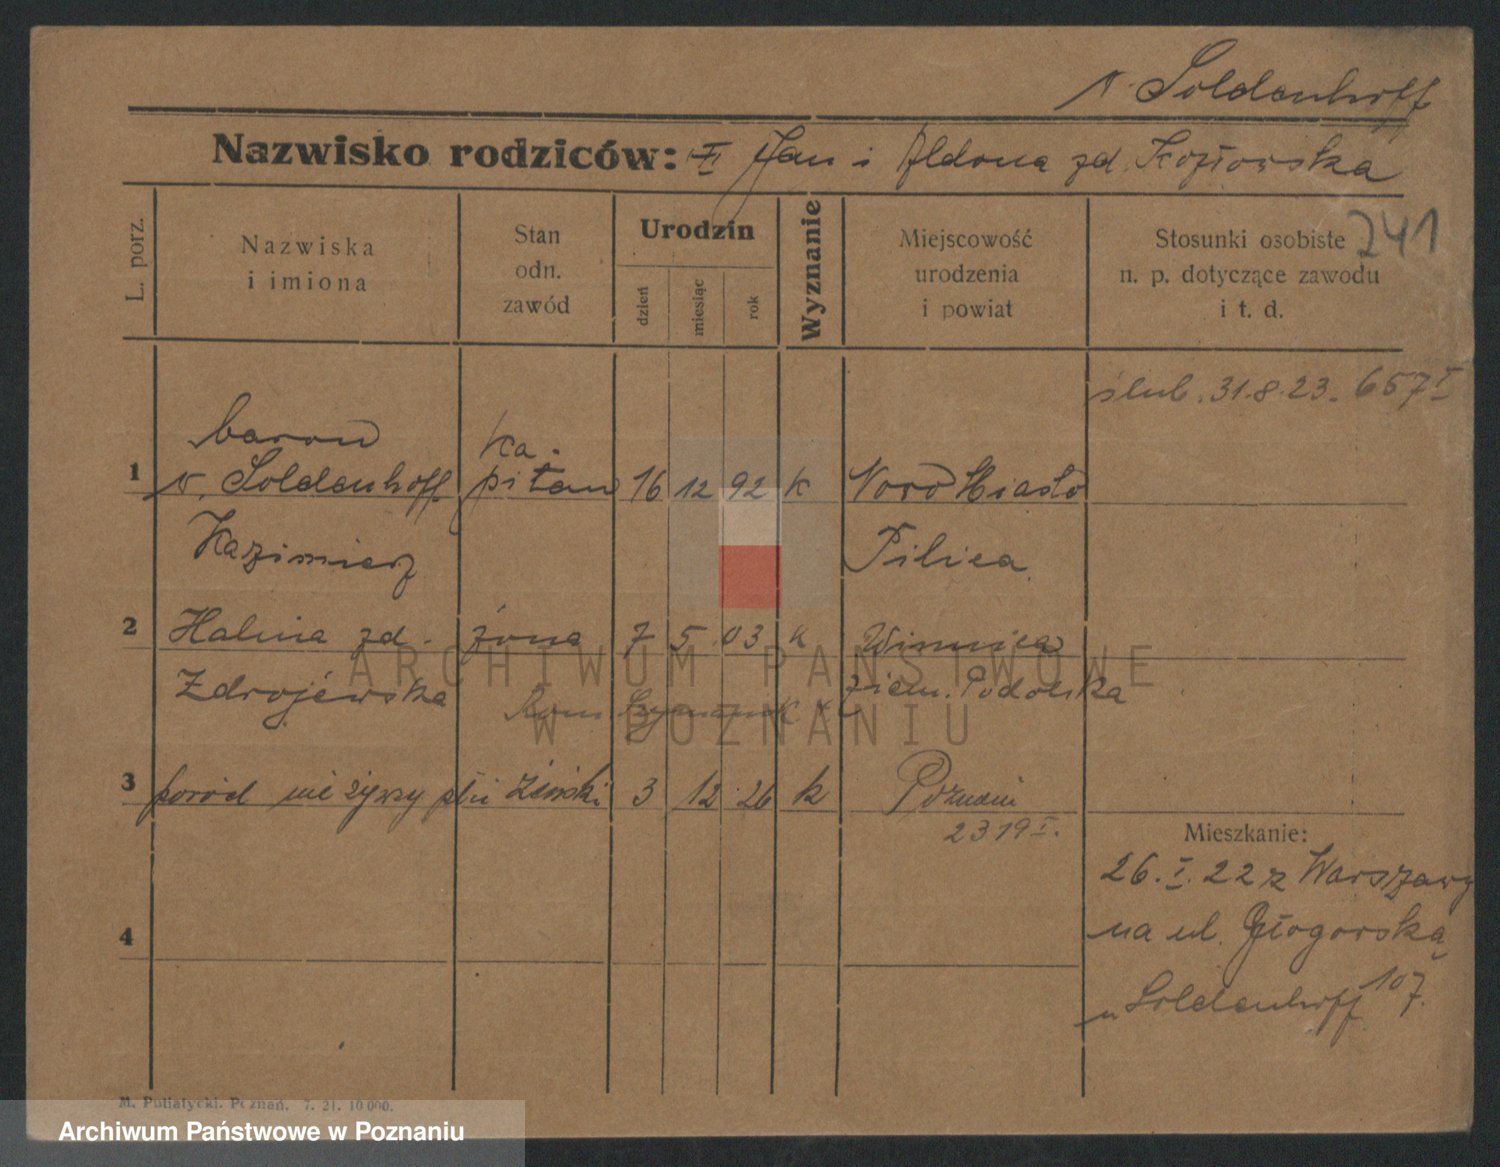 v. Soldenhoff
Nazwisko rodziców: Jan i Aldona zd. Kozłowska
L. porz.
Nazwiska i imiona
Stan odn. zawód
Urodzin
dzień
miesiąc
rok
Wyznanie
Miejscowość urodzenia i powiat
Stosunki osobiste n. p. dotyczące zawodu i t. d.
241
ślub. 31.8.23. 657 I
baron ka-
1 v. Soldenhoff pitan 16 12 92 k Nowo Miasto
Kazimierz Pilica
2 Halina zd. żona 7 5 03 k Winnica
Zdrojewska ziem. Podolska
3 poród nieżywy płci żeński 3 12 26 k Poznań
2319 I.
4
Mieszkanie:
26. I. 22 z Warszawy
na ul. Głogorską
107.
u Soldenhoff
M. Putiatycki. Poznań. 7. 21. 10 000.
ARCHIWUM PAŃSTWOWE
W POZNANIU
Archiwum Państwowe w Poznaniu